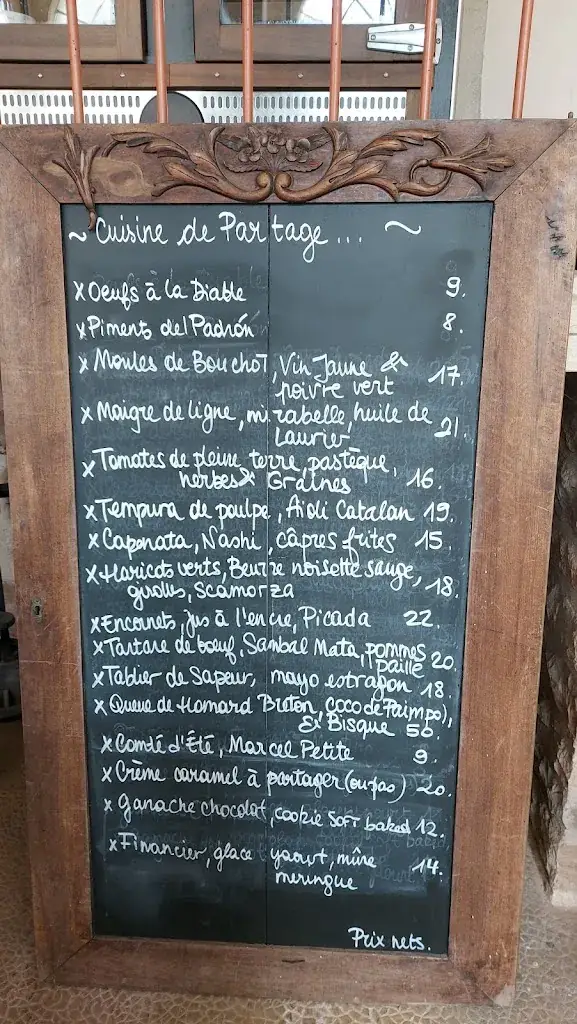 ~ Cuisine de Partage... ~
x Oeufs à la Diable 9.
x Piments del Padrón 8.
x Moules de Bouchot, Vin Jaune &
poivre vert 17.
x Maigre de ligne, mirabelle, huile de
Laurier 21.
x Tomates de pleine terre, pastèque,
herbes & Graines 16.
x Tempura de poulpe, Aïoli Catalan 19.
x Caponata, Nashi, câpres frites 15.
x Haricots verts, Beurre noisette sauge,
girolles, Scamorza 18.
x Encornets, jus à l'encre, Picada 22.
x Tartare de bœuf, Sambal Mata, pommes
paille 20.
x Tablier de Sapeur, mayo estragon 18.
x Queue de Homard Breton, coco de Paimpol,
& Bisque 50.
x Comté d'Été, Marcel Petite 9.
x Crème caramel à partager (ou pas) 20.
x Ganache chocolat, cookie soft baked 12.
x Financier, glace yaourt, mûre
meringue 14.
Prix nets.